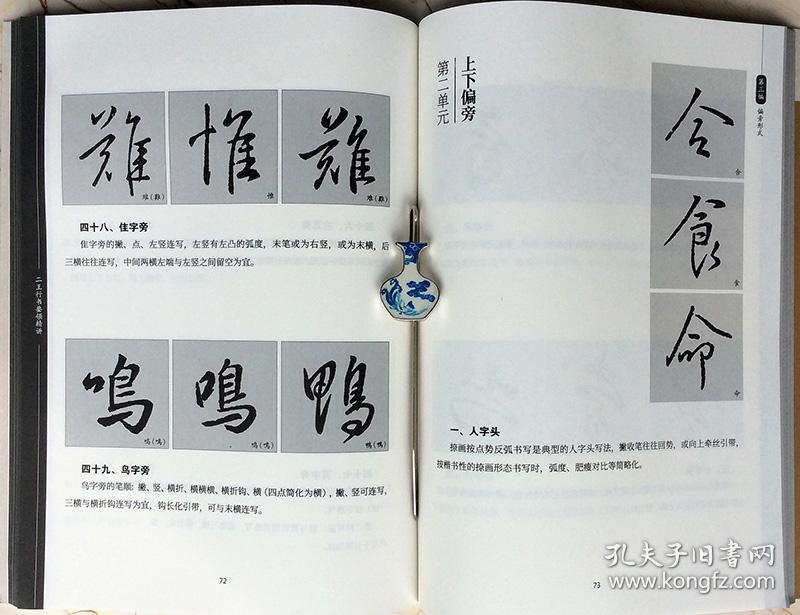 二王行书要领精讲
難 惟 難
难(難) 惟 难(難)
四十八、隹字旁
隹字旁的撇、点、左竖连写，左竖有左凸的弧度，末笔或为右竖，或为末横，后
三横往往连写，中间两横左端与左竖之间留空为宜。
鳴 鳴 鴨
鸣(鳴) 鸣(鳴)
四十九、鸟字旁
鸟字旁的笔顺：撇、竖、横折、横横横、横折钩、横（四点简化为横），撇、竖可连写，
三横与横折钩连写为宜，钩长化引带，可与末横连写。
72
第三编 偏旁形式
上下偏旁
第二单元
合
合
食
食
命
命
一、人字头
捺画按点势反弧书写是典型的人字头写法，撇收笔往往回势，或向上牵丝引带，
按楷书性的捺画形态书写时，弧度、肥瘦对比等简略化。
73
孔夫子旧书网
www.kongfz.com